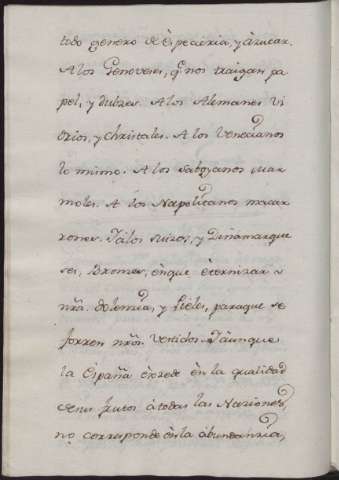 todo genero de èspecieria, y àzucar.
A los Genoveses, q̃. nos traigan pa
pel, y dulzes. A los Alemanes vi
drios, y christales. A los Venecianos
lo mismo. A los saboyanos mar
moles. A los Napolitanos macar
rones. Ya los suizos, y Dinamarque
ses, Bromzes, èn que èternizar
nr̃a. dolemzia, y Pieles, para que se
forren nr̃os. Vestidos. Y àunque
la España èxcede èn la qualidad
de sus frutos à todas las Naziones,
no corresponde èn la àbundanzia,